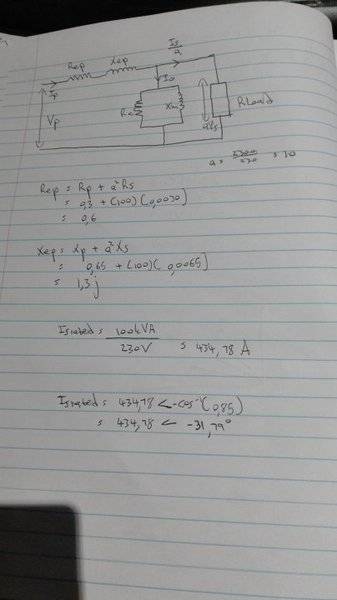 Rep Xep Is/a
Ip
Io
Vp Rc Xm aVs RLoad
a = 2300/230 = 10
Rep = Rp + a²Rs
= 0,3 + (100)(0,0030)
= 0,6
Xep = Xp + a²Xs
= 0,65 + (100)(0,0065)
= 1,3j
Israted = 100kVA/230V = 434,78 A
Israted = 434,78 < -cos⁻¹(0,85)
= 434,78 < -31,79°